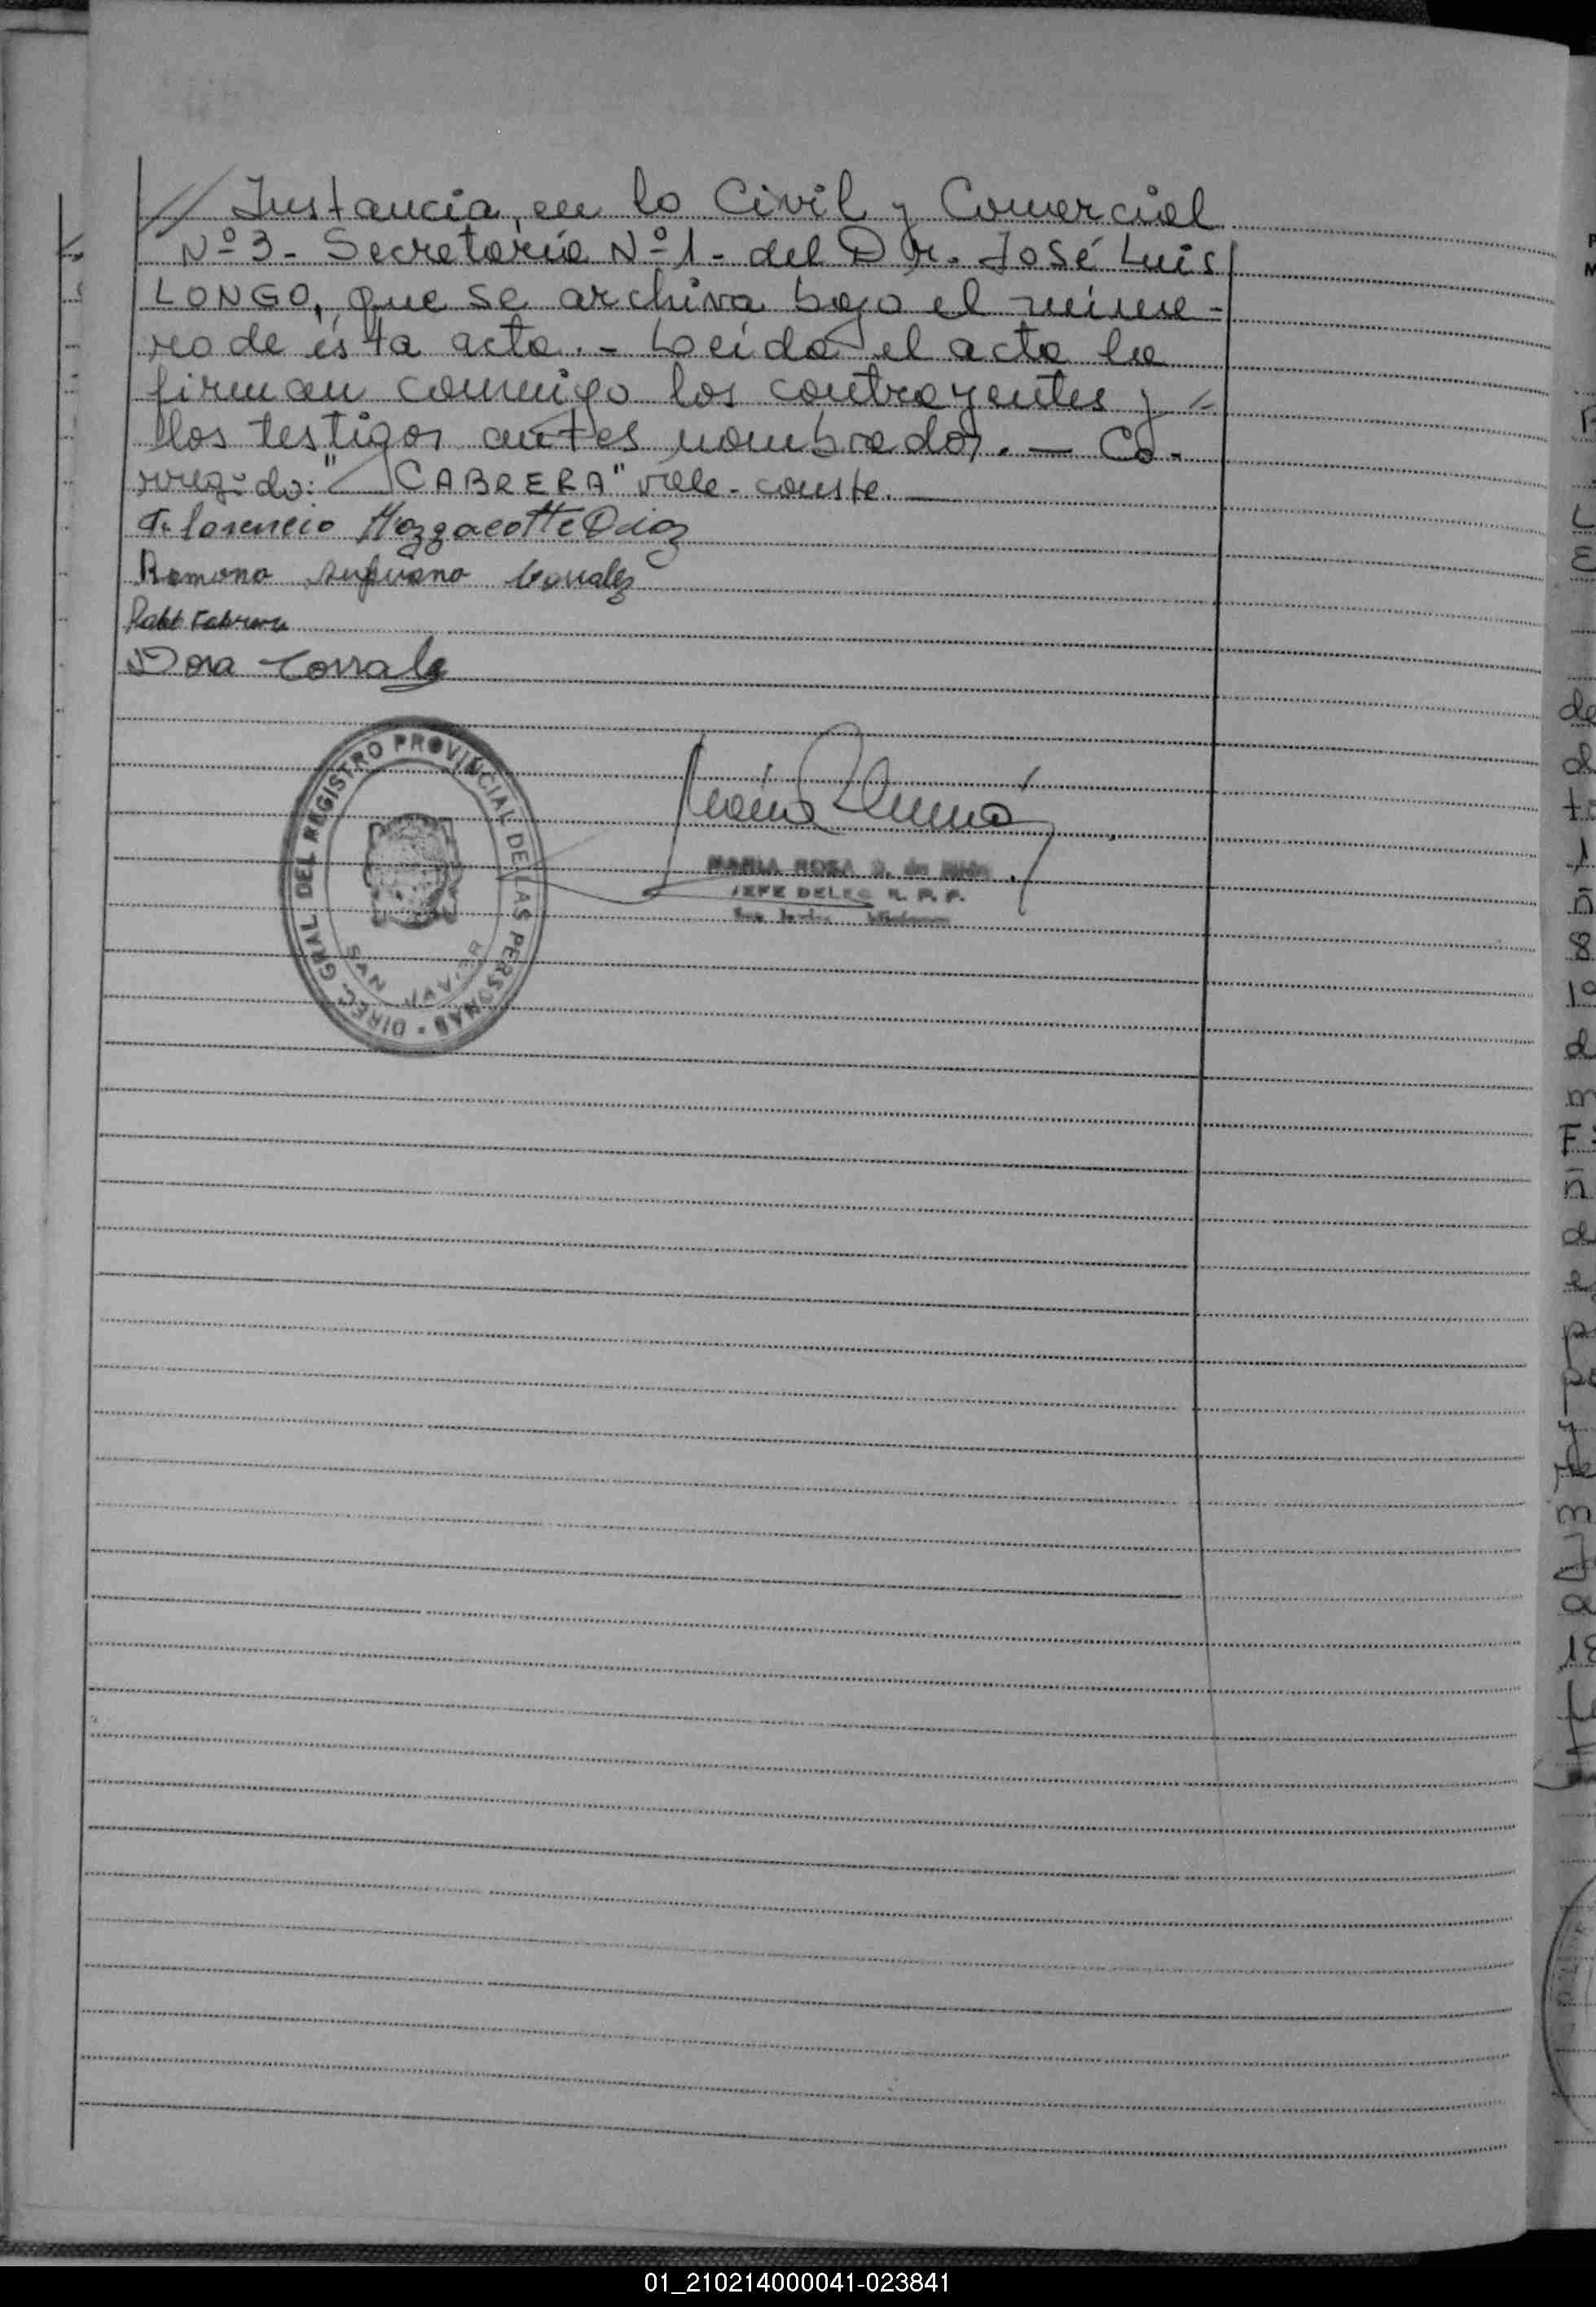 // Instancia, en lo Civil y Comercial
Nº 3 - Secretaría Nº 1 - del Dr. José Luis
LONGO, que se archiva bajo el núme-
ro de ésta acta. - Leída el acta la
firman conmigo los contrayentes y =
los testigos antes nombrados. — Co-
rregido: "CABRERA" vale - conste. —
Florencio Mozzacotte Diaz
Ramona Corrales
Cabrera
Dora Corrales
DIREC. GRAL DEL REGISTRO PROVINCIAL DE LAS PERSONAS
SAN JAVIER
MARIA ROSA
JEFE DELEG. R. P. P.
San Javier Misiones
01_210214000041-023841